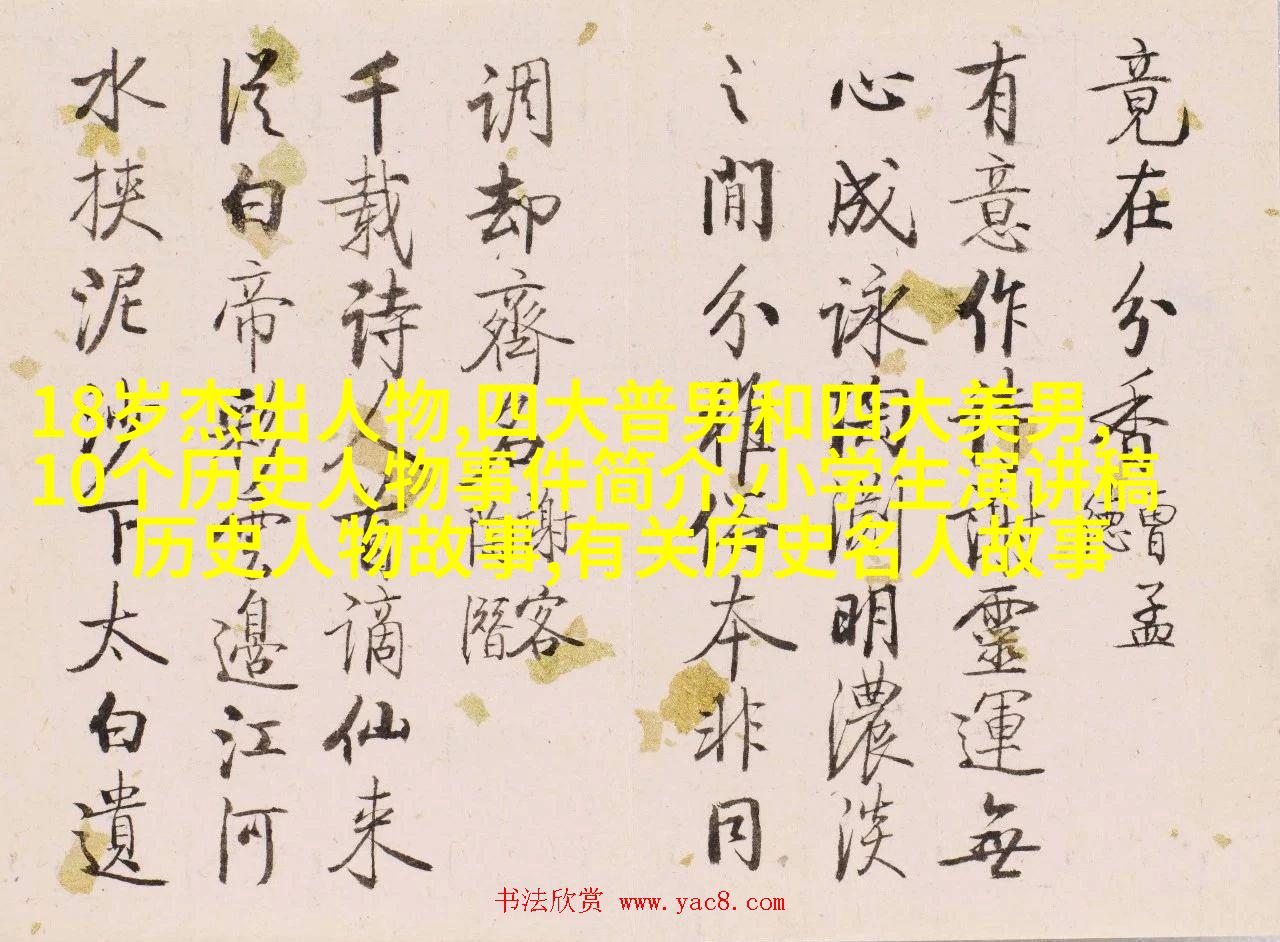 竟在分香曹孟德
有意作詩謝靈運無
心成詠陶淵明濃淡
之間分雅俗本非同
調却齊名謝客陶潛
千載詩人有謫仙来
從白帝彩雲邊江河
水挾泥沙下太白遺
18岁杰出人物,四大普男和四大美男,
10个历史人物事件简介,小学生演讲稿
历史人物故事,有关历史名人故事
书法欣赏 www.yac8.com